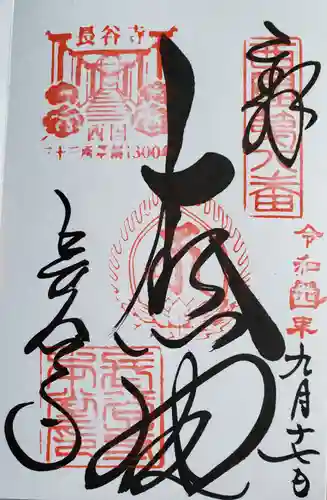 奉拝
西国第八番
令和四年
九月十七日
大悲閣
長谷寺
西国
三十三所草創1300年
長谷寺